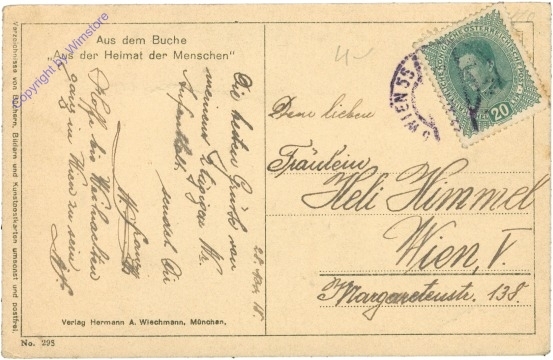 Aus dem Buche
"Aus der Heimat der Menschen"
Verzeichnisse von Büchern, Bildern und Kunstpostkarten umsonst und postfrei.
copyright by Wimstore
Die besten Grüße von
meinem
Aufenthalt
sendet Dir
Hoffe bis Weihnachten
ganz in Wien zu sein
Dem lieben
Fräulein
Heli Himmel
Wien, V.
Margaretenstr. 138.
WIEN 55
20
Verlag Hermann A. Wiechmann, München.
No. 298